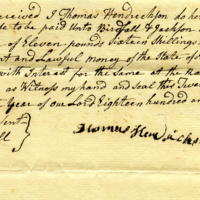 eceived I Thomas Hendrickson do he
de to be paid Unto Birdsall & Jackson
of Eleven pounds Sixtain Shillings
nt and Lawful money of the State of
with Interest for the Same at the Ra
as Witness my hand and Seal this Twe
t Year of our Lord Eighteen hundred an
Sent
ll
Thomas Hendricks